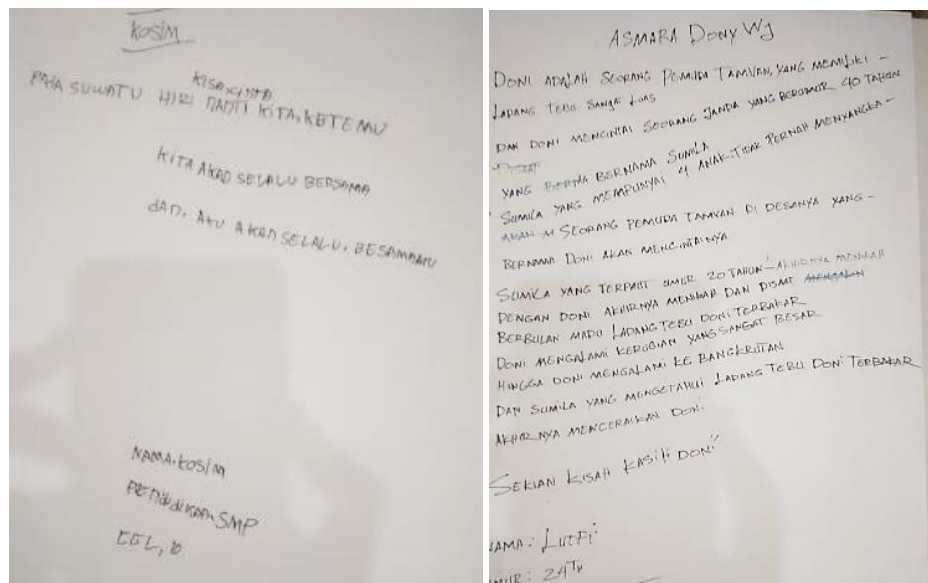 KOSIM
KISA CINTA
PADA SUWATU HIRI NADTI KITA, KETEMU
KITA AKAD SELALU BERSAMA
dAD. AKU AKAD SELALU. BESAMAMU
NAMA. KOSIM
SMP
ASMARA DONY WJ
DONI ADALAH SEORANG PEMUDA TAMVAN, YANG MEMILIKI -
LADANG TEBU SANGAT LUAS
DAN DONI MENCINTAI SEORANG JANDA YANG BERUMUR 40 TAHUN
YANG BERNAMA SUMILA
SUMILA YANG MEMPUNYAI 4 ANAK. TIDAK PERNAH MENYANGKA -
AKAN SEORANG PEMUDA TAMVAN DI DESANYA YANG -
BERNAMA DONI AKAN MENCINTAINYA
SUMILA YANG TERPAUT UMUR 20 TAHUN - AKHIRNYA MENIKAH
DENGAN DONI AKHIRNYA MENIKAH DAN DISAAT
BERBULAN MADU LADANG TEBU DONI TERBAKAR
DONI MENGALAMI KERUGIAN YANG SANGAT BESAR
HINGGA DONI MENGALAMI KE BANGKRUTAN
DAN SUMILA YANG MENGETAHUI LADANG TEBU DONI TERBAKAR
AKHIRNYA MENCERAIKAN DONI
SEKIAN KISAH KASIH DONI
NAMA: LUTFI
UMUR: 24 TH